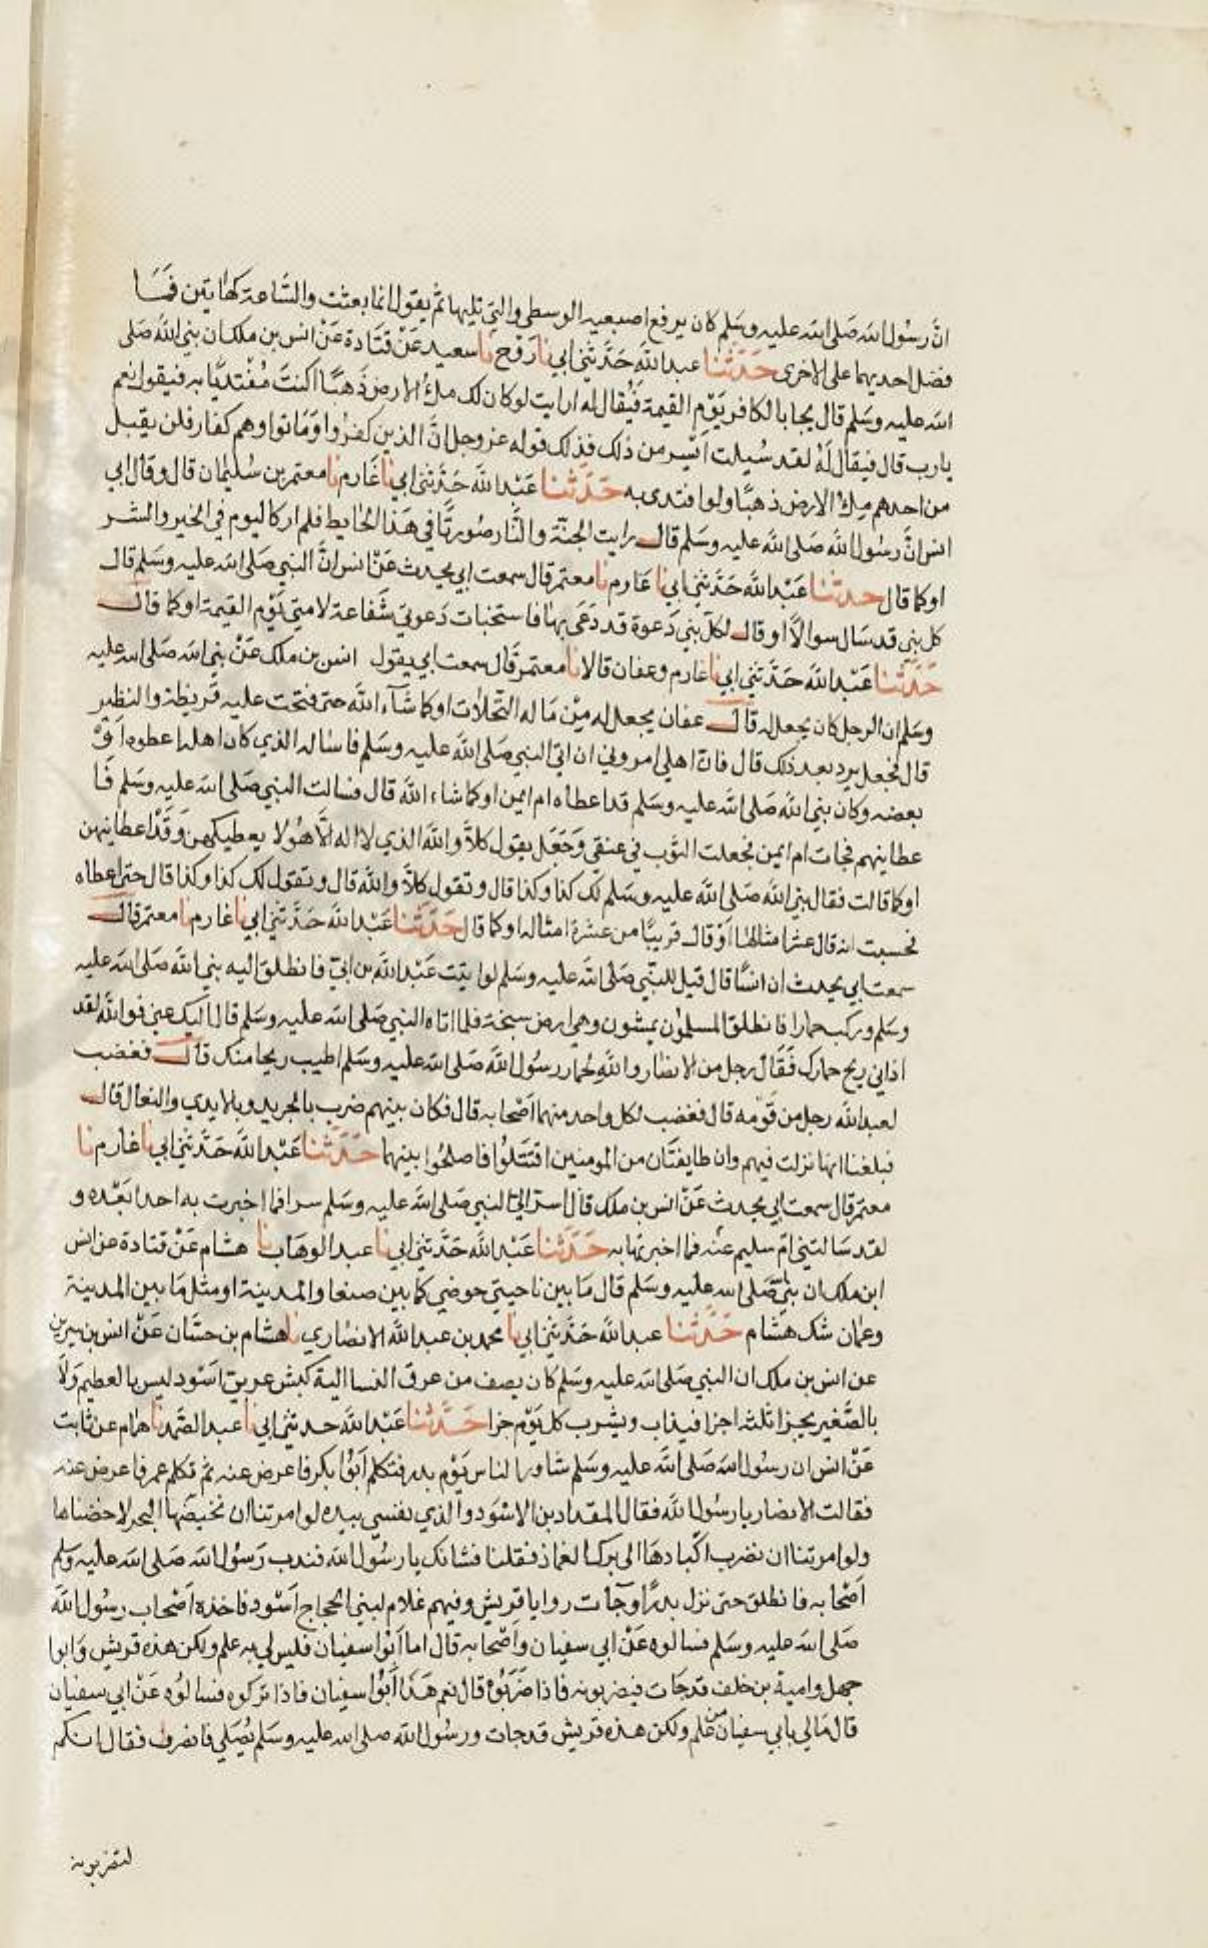 انّ رسُول الله صَلى الله عليه وسَلم كان يرفع اصبعيه الوسطى والتي تليها ثم يقول انما بعثت والسّاعة كهاتين فمَا
فضل احديهما على الاخرى حَدّثنا عبد الله حَدّثني ابي نا رَوح نا سعيد عَنْ قتَادة عَنْ انس بن ملك ان نبي الله صَلى
الله عليه وسَلم قال يجا بالكافر يَوْم القيمة فيُقال له ارايت لو كان لك ملءُ الارض ذَهبًا اكنتَ مُفْتديًا به فيقول نعم
يارب قال فيقال لهُ لقد سُيلت ايْسر من ذلك فذلك قوله عز وجل انَّ الذين كفرُوا وَمَاتوا وهم كفار فلن يقبل
من احدهم ملءُ الارض ذهبًا ولو افتدى به حَدّثنا عَبْد الله حَدّثني ابي نا عَارم نا معتمر بن سُليمان قال وقال ابي
انس انَّ رسُول الله صَلى الله عليه وسَلم قال رايت الجنّة والنَّار صُورتَا في هَذا الحَايط فلم ار كاليوم في الخير والشر
اوكما قال حدثنا عَبْد الله حَدّثني ابي نا عَارم نا معتمر قال سمعت ابي يحدث عَنْ انس انَّ النبي صَلى الله عليه وسَلم قال
كل نبي قد سَال سوالًا او قال لكلّ نبي دَعوة قد دَعَى بهَا فاستخبات دَعوتي شَفاعة لامتي يَوْم القيمة اوكما قال
حَدّثنا عَبْد الله حَدّثني ابي نا عَارم وعفان قالا نا معتمر قال سمعت ابي يقول انس بن ملك عَنْ نبي الله صَلى الله عليه
وسَلم ان الرجل كان يجعل له قال عفان يجعل له مِنْ مَاله النّخلات اوكما شَآء الله حتى فتحت عليه قريظة والنظير
قال فجعل يرد بعد ذلك قال فانّ اهلي امروني ان اتي النبي صَلى الله عليه وسَلم فاسَاله الذي كان اهله اعطوه اَوْ
بعضه وكان نبي الله صَلى الله عليه وسَلم قد اعطاه ام ايمن اوكما شاء الله قال فسالت النبي صَلى الله عليه وسَلم فَا
عطانيهم فجات ام ايمن فجعلت الثوب في عنقي وَجَعَل يقول كلاَّ والله الذي لا اله الاَّ هُو لا يعطيكهن وَقَدْ اعطانيهن
اوكما قالت فقال نبي الله صَلى الله عليه وسَلم لك كذا وكذا قال وتقول كلاَّ والله قال ويقول لك كذا وكذا قال حتى اعطاه
فحسبت انه قال عشر امثالهَا اَوْ قال قريبًا من عشرة امثاله اوكما قال حَدّثنا عَبْد الله حَدّثني ابي نا عَارم نا معتمر قال
سمعت ابي يحدث ان انسًا قال قيل للنّبي صَلى الله عليه وسَلم لو اتيت عَبْد الله بن ابي فانطلق اليه نبي الله صَلى الله عليه
وسَلم وركب حمارا فانطلق المسلمُون يمشون وهي ارض سبخة فلما اتاه النبي صَلى الله عليه وسَلم قال اليك عني فوالله لقد
اذاني ريح حمارك فَقَال رجل من الانصَار والله لحمار رسُول الله صَلى الله عليه وسَلم اطيب ريحا منك قال فغضب
لعبد الله رجل من قَومه قال فغضب لكل واحد منهما اصْحَابه قال فكان بينهم ضرب بالجريد وبالايدي والنعَال قال
فبلغنا انهَا نزلت فيهم وان طايفتَان من المومنين اقتَتَلُوا فاصلحُوا بينهما حَدّثنا عَبْد الله حَدّثني ابي نا عَارم نا
معتمر قال سمعت ابي يحدث عَنْ انس بن ملك قال اسرّ اليّ النبي صَلى الله عليه وسَلم سرا فما اخبرت به احدا بَعْده و
لقد سَالتني امّ سليم عنه فما اخبرتها به حَدّثنا عَبْد الله حَدّثني ابي نا عبد الوهَاب نا هشام عَنْ قتادة عن انس
ابن ملك ان نبي صَلى الله عليه وسَلم قال مَا بين ناحيتي حوضي كما بين صنعا والمدينة او مثل مَا بين المدينة
وعمان شك هشام حَدّثنا عبد الله حَدّثني ابي نا محمد بن عبد الله الانصَاري نا هشام بن حسَّان عَنْ انس بن سيرين
عن انس بن ملك ان النبي صَلى الله عليه وسَلم كان يصف من عرق النسا الية كبش عربيّ اسْود ليس بالعظيم وَلا
بالصَّغير يجزا ثلثة اجزا فيذاب ويشرب كل يَوْم جزا حَدّثنا عَبْد الله حدثني ابي نا عبد الصَّمد نا همام عن ثابت
عَنْ انس ان رسُول الله صَلى الله عليه وسَلم شاور الناس يَوْم بدر فتكلم اَبُوا بكر فاعرض عنه ثم تكلم عمر فاعرض عنه
فقالت الانصار يارسُول الله فقال المقداد بن الاسْوَد والذي نفسي بيده لو امرتنا ان نخيضَها البحر لاخضناها
ولو امرتنا ان نضرب اكبادهَا الى برك الغماد فعلنا فشانك يا رسُول الله فندب رَسُول الله صَلى الله عليه وسَلم
اصْحَابه فانطلق حتى نزل بدرًا وجآت روايا قريش وفيهم غلام لبني الحجاج اسْود فاخذه اصْحاب رسُول الله
صَلى الله عليه وسَلم فسالوه عَنْ ابي سفيان واصْحَابه قال اما اَبُوا سفيان فليس لي به علم ولكن هذه قريش وَابوا
جهل وامية بن خلف قد جَات فيضربونه فاذا ضرَبُوهُ قال نعم هَذَا اَبُوا سفيان فاذا تركوه فسالوُه عَنْ ابي سفيان
قال مَالي بابي سفيان من علم ولكن هذه قريش قد جات ورسُول الله صلى الله عليه وسَلم يُصَلي فانصرف فقال انكم
لتضربونه